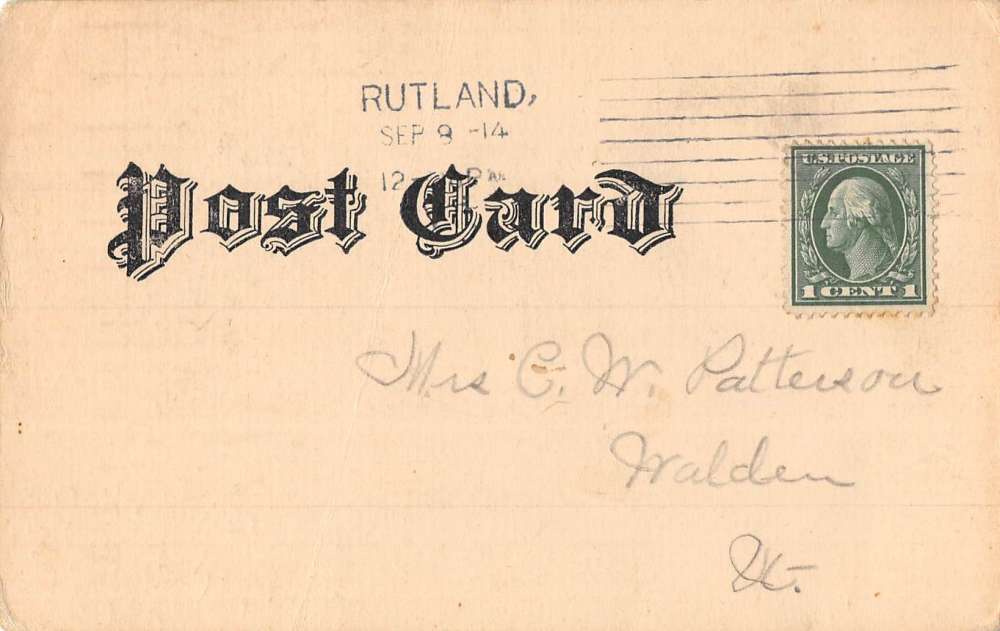 RUTLAND,
SEP 9 -14
12- PM
Post Card
U.S. POSTAGE
1 CENT 1
Mrs C. W. Patterson
Walden
Vt.